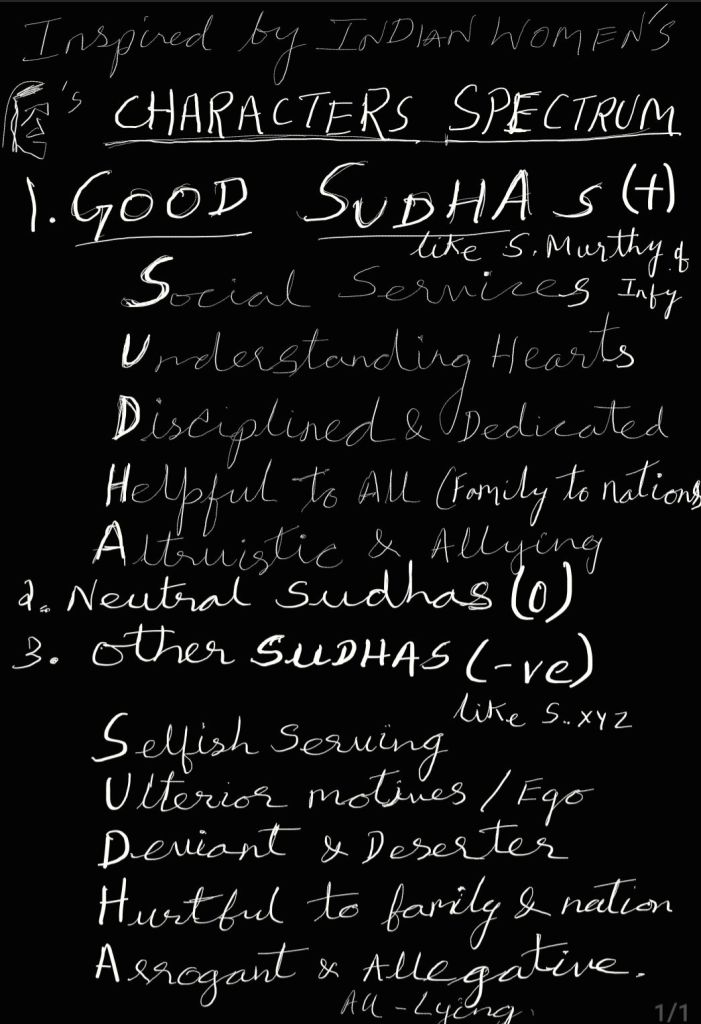 Inspired by INDIAN WOMEN'S
's CHARACTERS SPECTRUM
1. GOOD SUDHAs (+)
like S. Murthy of
Social Services Infy
Understanding Hearts
Disciplined & Dedicated
Helpful to All (Family to nations
Altruistic & Allying
2. Neutral Sudhas (0)
3. other SUDHAS (-ve)
like S..XYZ
Selfish Serving
Ulterior motives / Ego
Deviant & Deserter
Hurtful to family & nation
Arrogant & Allegative.
All-Lying.
1/1